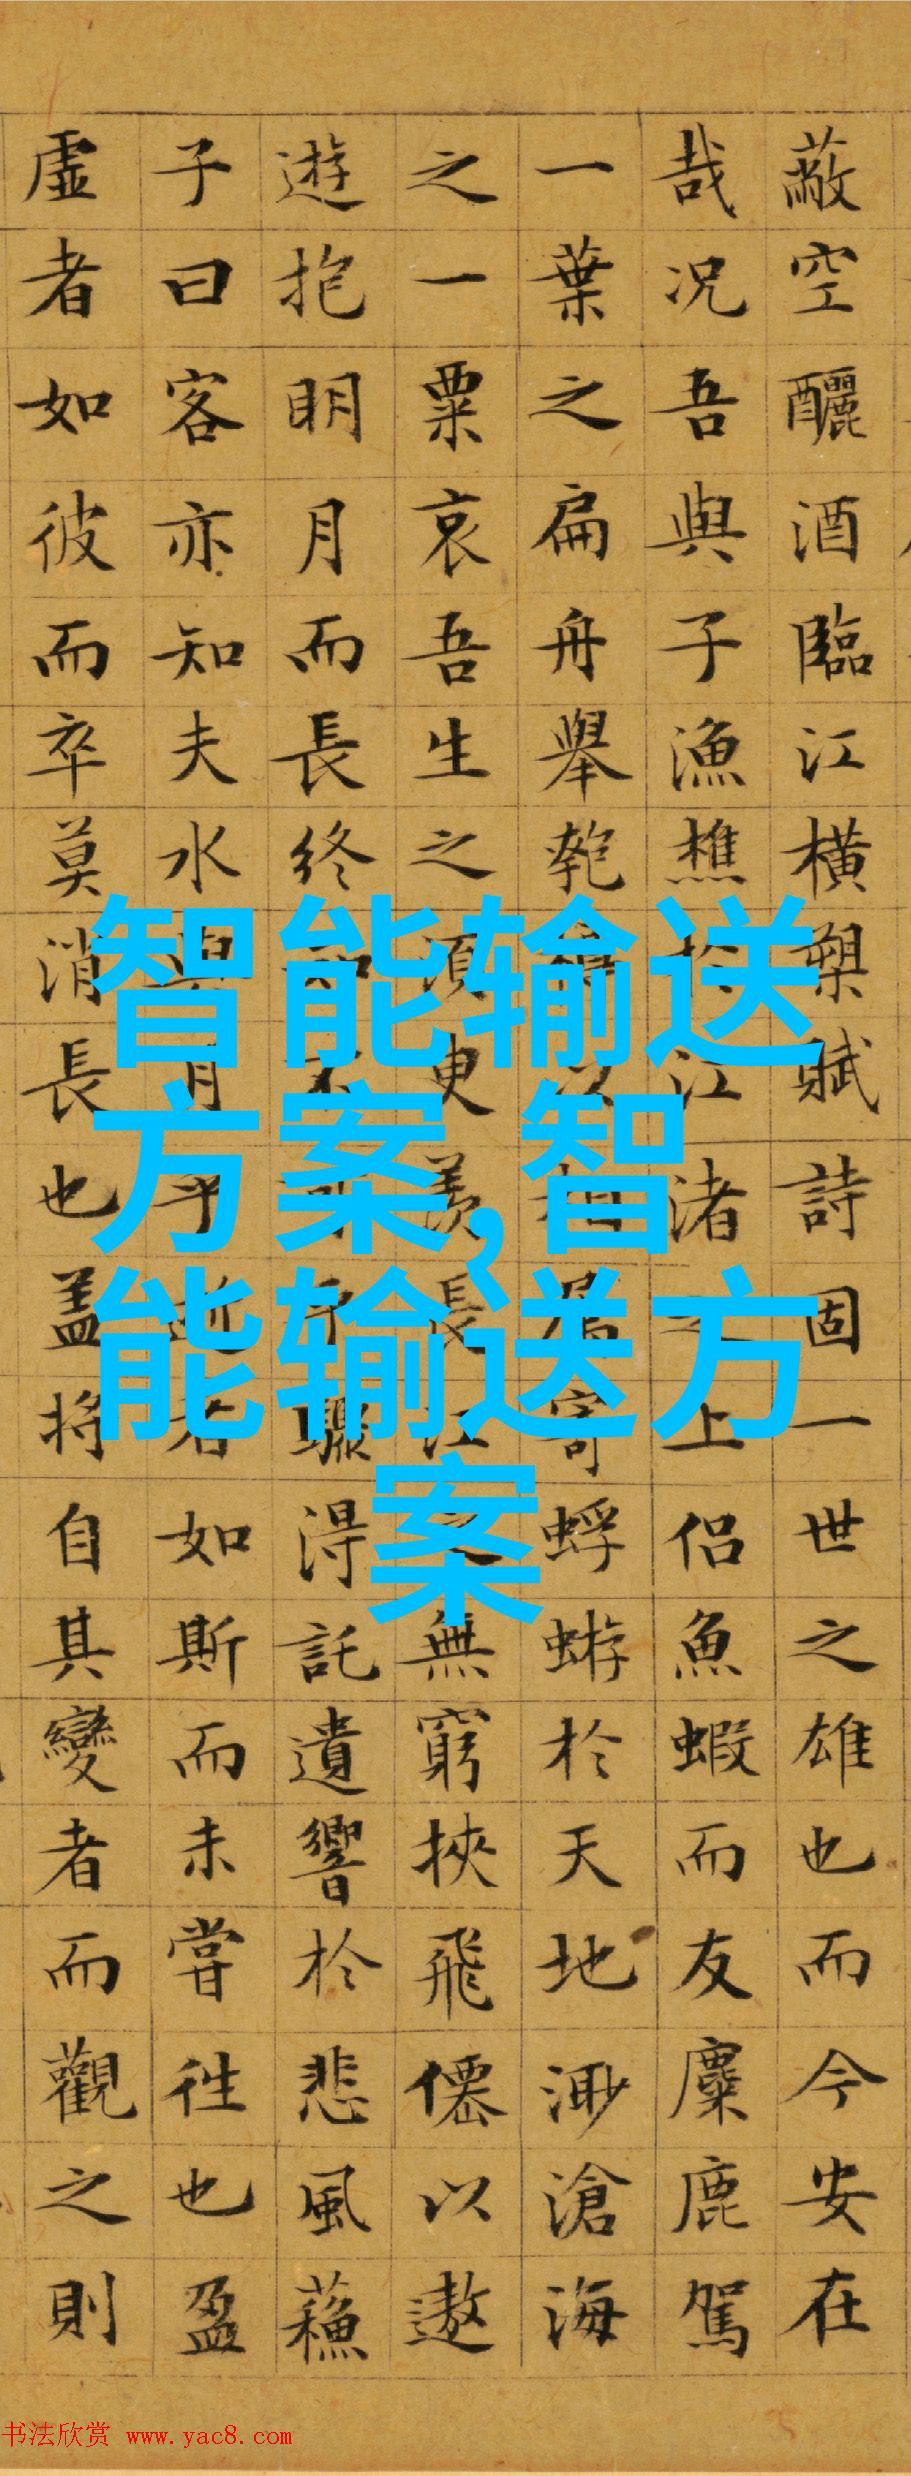 蔽空釃酒臨江橫槊賦詩固一世之雄也而今安在
哉况吾與子漁樵於江渚之上侶魚蝦而友麋鹿駕
一葉之扁舟舉匏樽以相屬寄蜉蝣於天地渺滄海
之一粟哀吾生之須臾羨長江之無窮挾飛僊以遨
遊抱明月而長終知不可乎驟得託遺響於悲風蘓
子曰客亦知夫水與月乎逝者如斯而未嘗往也盈
虛者如彼而卒莫消長也盖將自其變者而觀之則
智能输送
方案,智
能输送方
案
书法欣赏 www.yac8.com